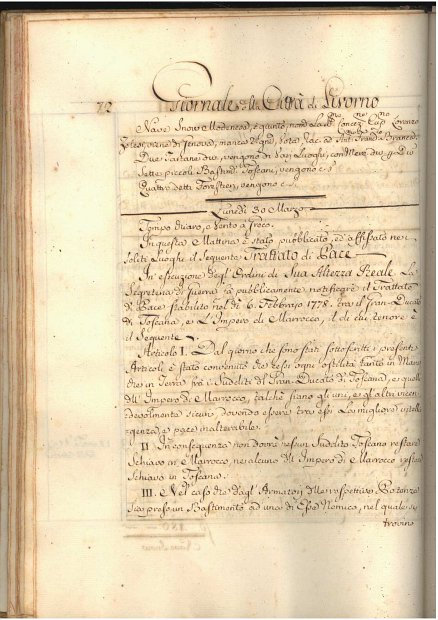 72
Giornale della Città di Livorno
Nave Snow Modenese, è giunto, nom. la SS. Concez. Cap. Lorenzo
viene di Genova, manca
Due Tartane div. vengono di Varj Luoghi, con Merc. div. p. Div.
Sette piccoli Bastim. Toscani, vengono c. s.
Quattro detti Forestieri, vengono c. s.
Lunedì 30 Marzo
Tempo chiaro, e Vento a Greco.
In questa Mattina è stato pubblicato, ed affissato ne
soliti Luoghi il seguente Trattato di Pace
In esecuzione degl'Ordini di Sua Altezza Reale. La
Segreteria di Guerra fà pubblicamente notificare il Trattato
di Pace stabilito nel dì 6. Febbrajo 1778. tra il Gran-Ducato
di Toscana, e L'Impero di Marrocco, il di cui tenore è
il Seguente
Articolo I. Dal giorno che sono stati sottoscritti i presenti
Articoli è stato convenuto che cessi ogni ostilità tanto in Mare
che in Terra frà i Sudditi del Gran-Ducato di Toscana, e quelli
dell'Impero di Marrocco, talchè siano gli uni, e gl'altri vicen-
devolmente sicuri, dovendo essere tra essi La migliore intelli-
genza, e pace inalterabile.
II. In conseguenza non dovrà nessun Suddito Toscano restare
Schiavo in Marrocco, ne alcuno dell'Impero di Marrocco restare
Schiavo in Toscana.
III. Nel caso che dagl'Armatori delle rispettive Potenze
sia preso un Bastimento ad una di Esse Nemico, nel quale si
trovino